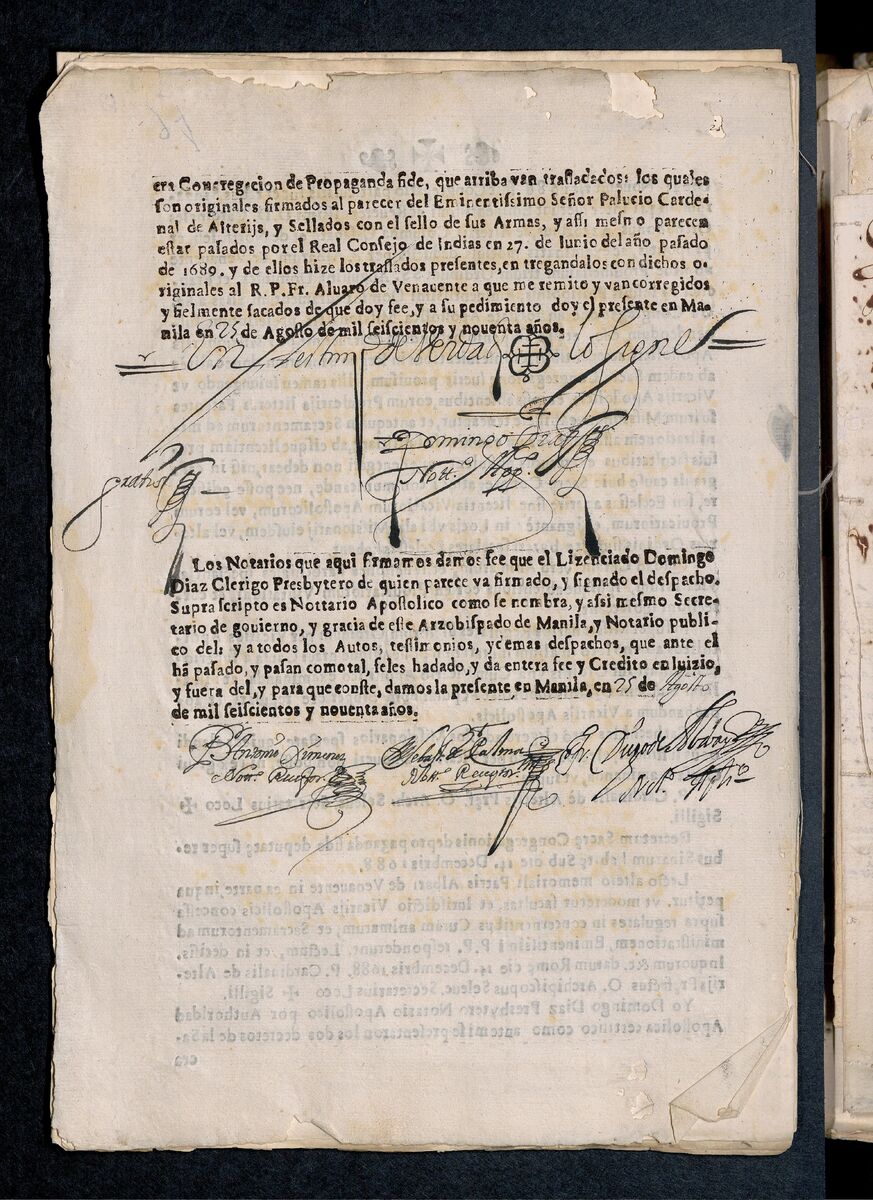 era Congregacion de Propaganda fide, que arriba van trasladados: los quales
son originales firmados al parecer del Eminentissimo Señor Palucio Carde-
nal de Alterijs, y Sellados con el sello de sus Armas, y assi mesmo parecen
estar pasados por el Real Consejo de Indias en 27. de Iunio del año pasado
de 1689. y de ellos hize los traslados presentes, en tregandalos con dichos o-
riginales al R. P. Fr. Aluaro de Venauente a que me remito y van corregidos
y fielmente sacados de que doy fee, y a su pedimiento doy el presente en Ma-
nila en 25 de Agosto de mil seiscientos y noventa años.
en testim de Verdad lo signe
Domingo Diaz
Nott.o App.o
gratis
Los Notarios que aqui firmamos damos fee que el Lizenciado Domingo
Diaz Clerigo Presbytero de quien parece va firmado, y signado el despacho.
Supra scripto es Nottario Apostolico como se nombra, y assi mesmo Secre-
tario de gouierno, y gracia de este Arzobispado de Manila, y Notario publi-
co del: y a todos los Autos, testimonios, y demas despachos, que ante el
hã pasado, y pasan como tal, seles hadado, y da entera fee y Credito en Iuizio,
y fuera del, y para que conste, damos la presente en Manila, en 25 de Agosto
de mil seiscientos y noventa años.
Antonio Ximenez
Nott.o Receptor
Sebast.
Nott.o Receptor
Fr. Diego de
Not.o App.o